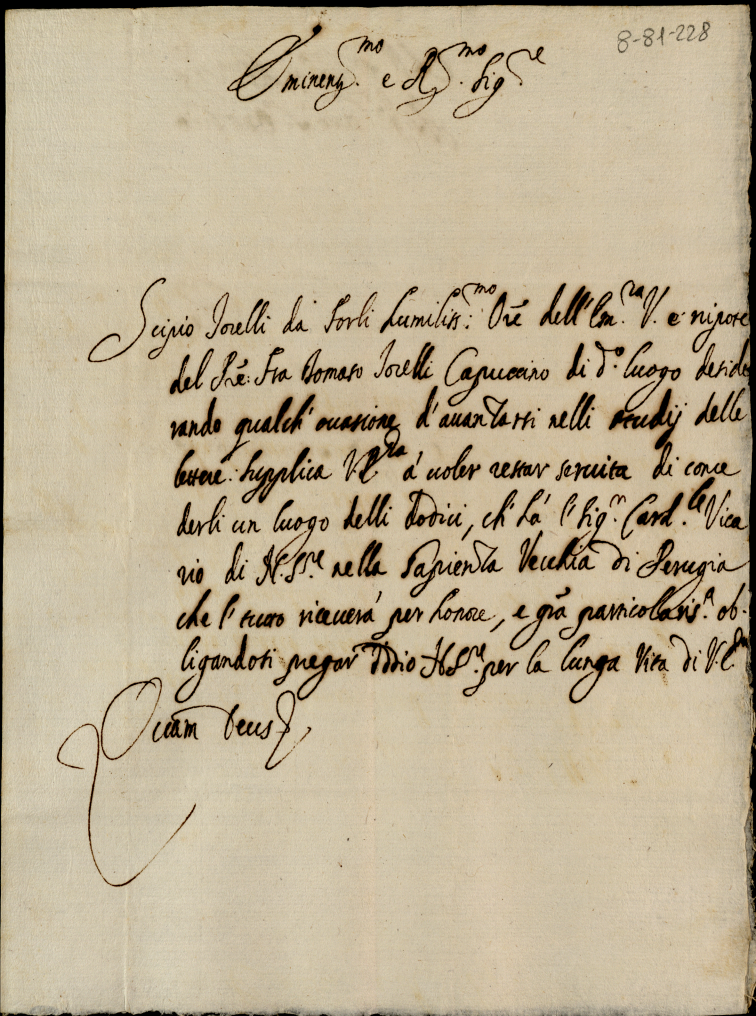 8-81-228
Eminenz.mo e R.mo Sig.re
Scipio Torelli da Forlì humiliss.mo Ore dell'Em.za V. e nipote
del Pre: Fra Tomaso Torelli Capuccino di d.o luogo deside
rando qualch'occasione d'auanzarsi nelli studij delle
lettere: supplica V.E.za à uoler restar seruita di conce
derli un luogo delli Dodici, ch'hà l'Sig.r Card.le Vica
rio di N.S.re nella Sapienza Vecchia di Perugia
che l'tutto riceuerà per honore, e gra particolaris.a ob-
ligandosi pregar Iddio N.S.re per la lunga Vita di V.E.za
Quam Deus